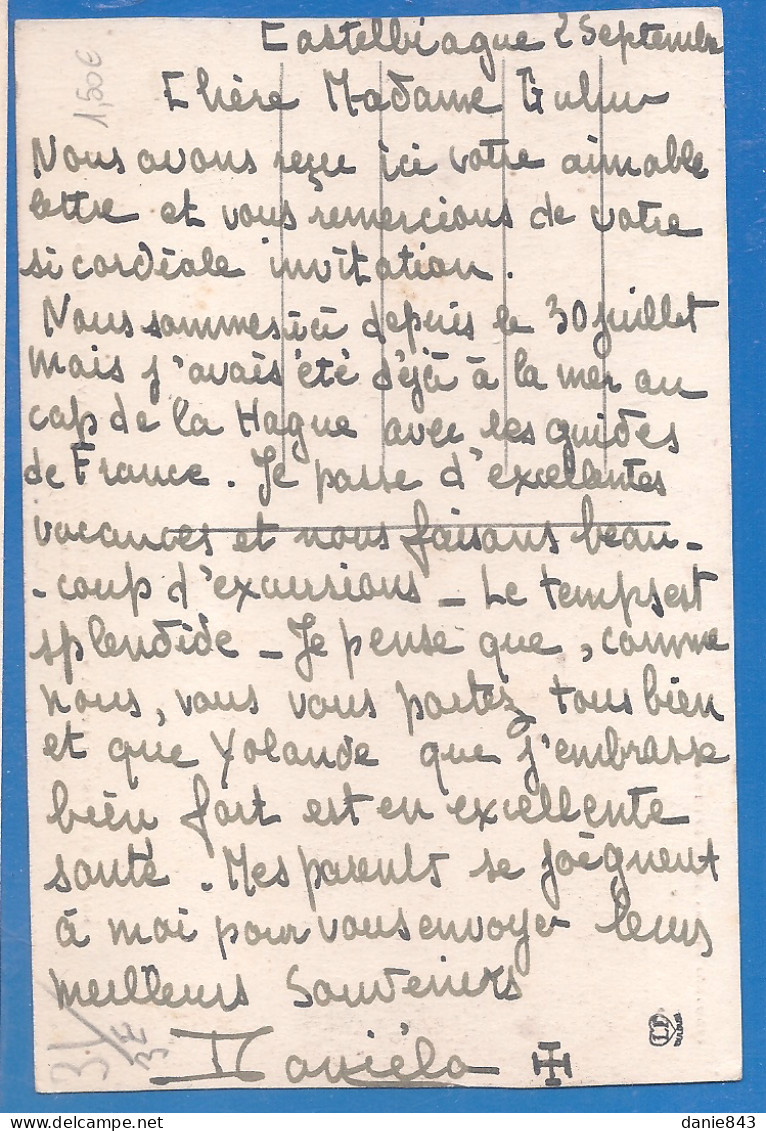 Castelbiague 2 Septembre
1,50€
Chère Madame
Nous avons reçu ici votre aimable
lettre et vous remercions de votre
si cordiale invitation.
Nous sommes ici depuis le 30 juillet
mais j'avais été déjà à la mer au
cap de la Hague avec les guides
de France. Je passe d'excellentes
vacances et nous faisons beau-
-coup d'excursions - Le temps est
splendide - Je pense que, comme
nous, vous vous portez tous bien
et que Yolande que j'embrasse
bien fort est en excellente
santé. Mes parents se joignent
à moi pour vous envoyer leurs
meilleurs souvenirs
Daniéla
3€
danie843